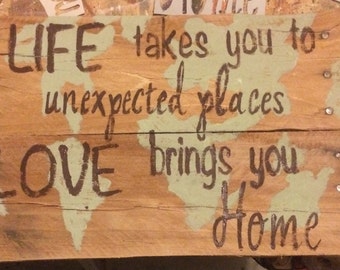 LIFE takes you to
unexpected places
LOVE brings you
Home